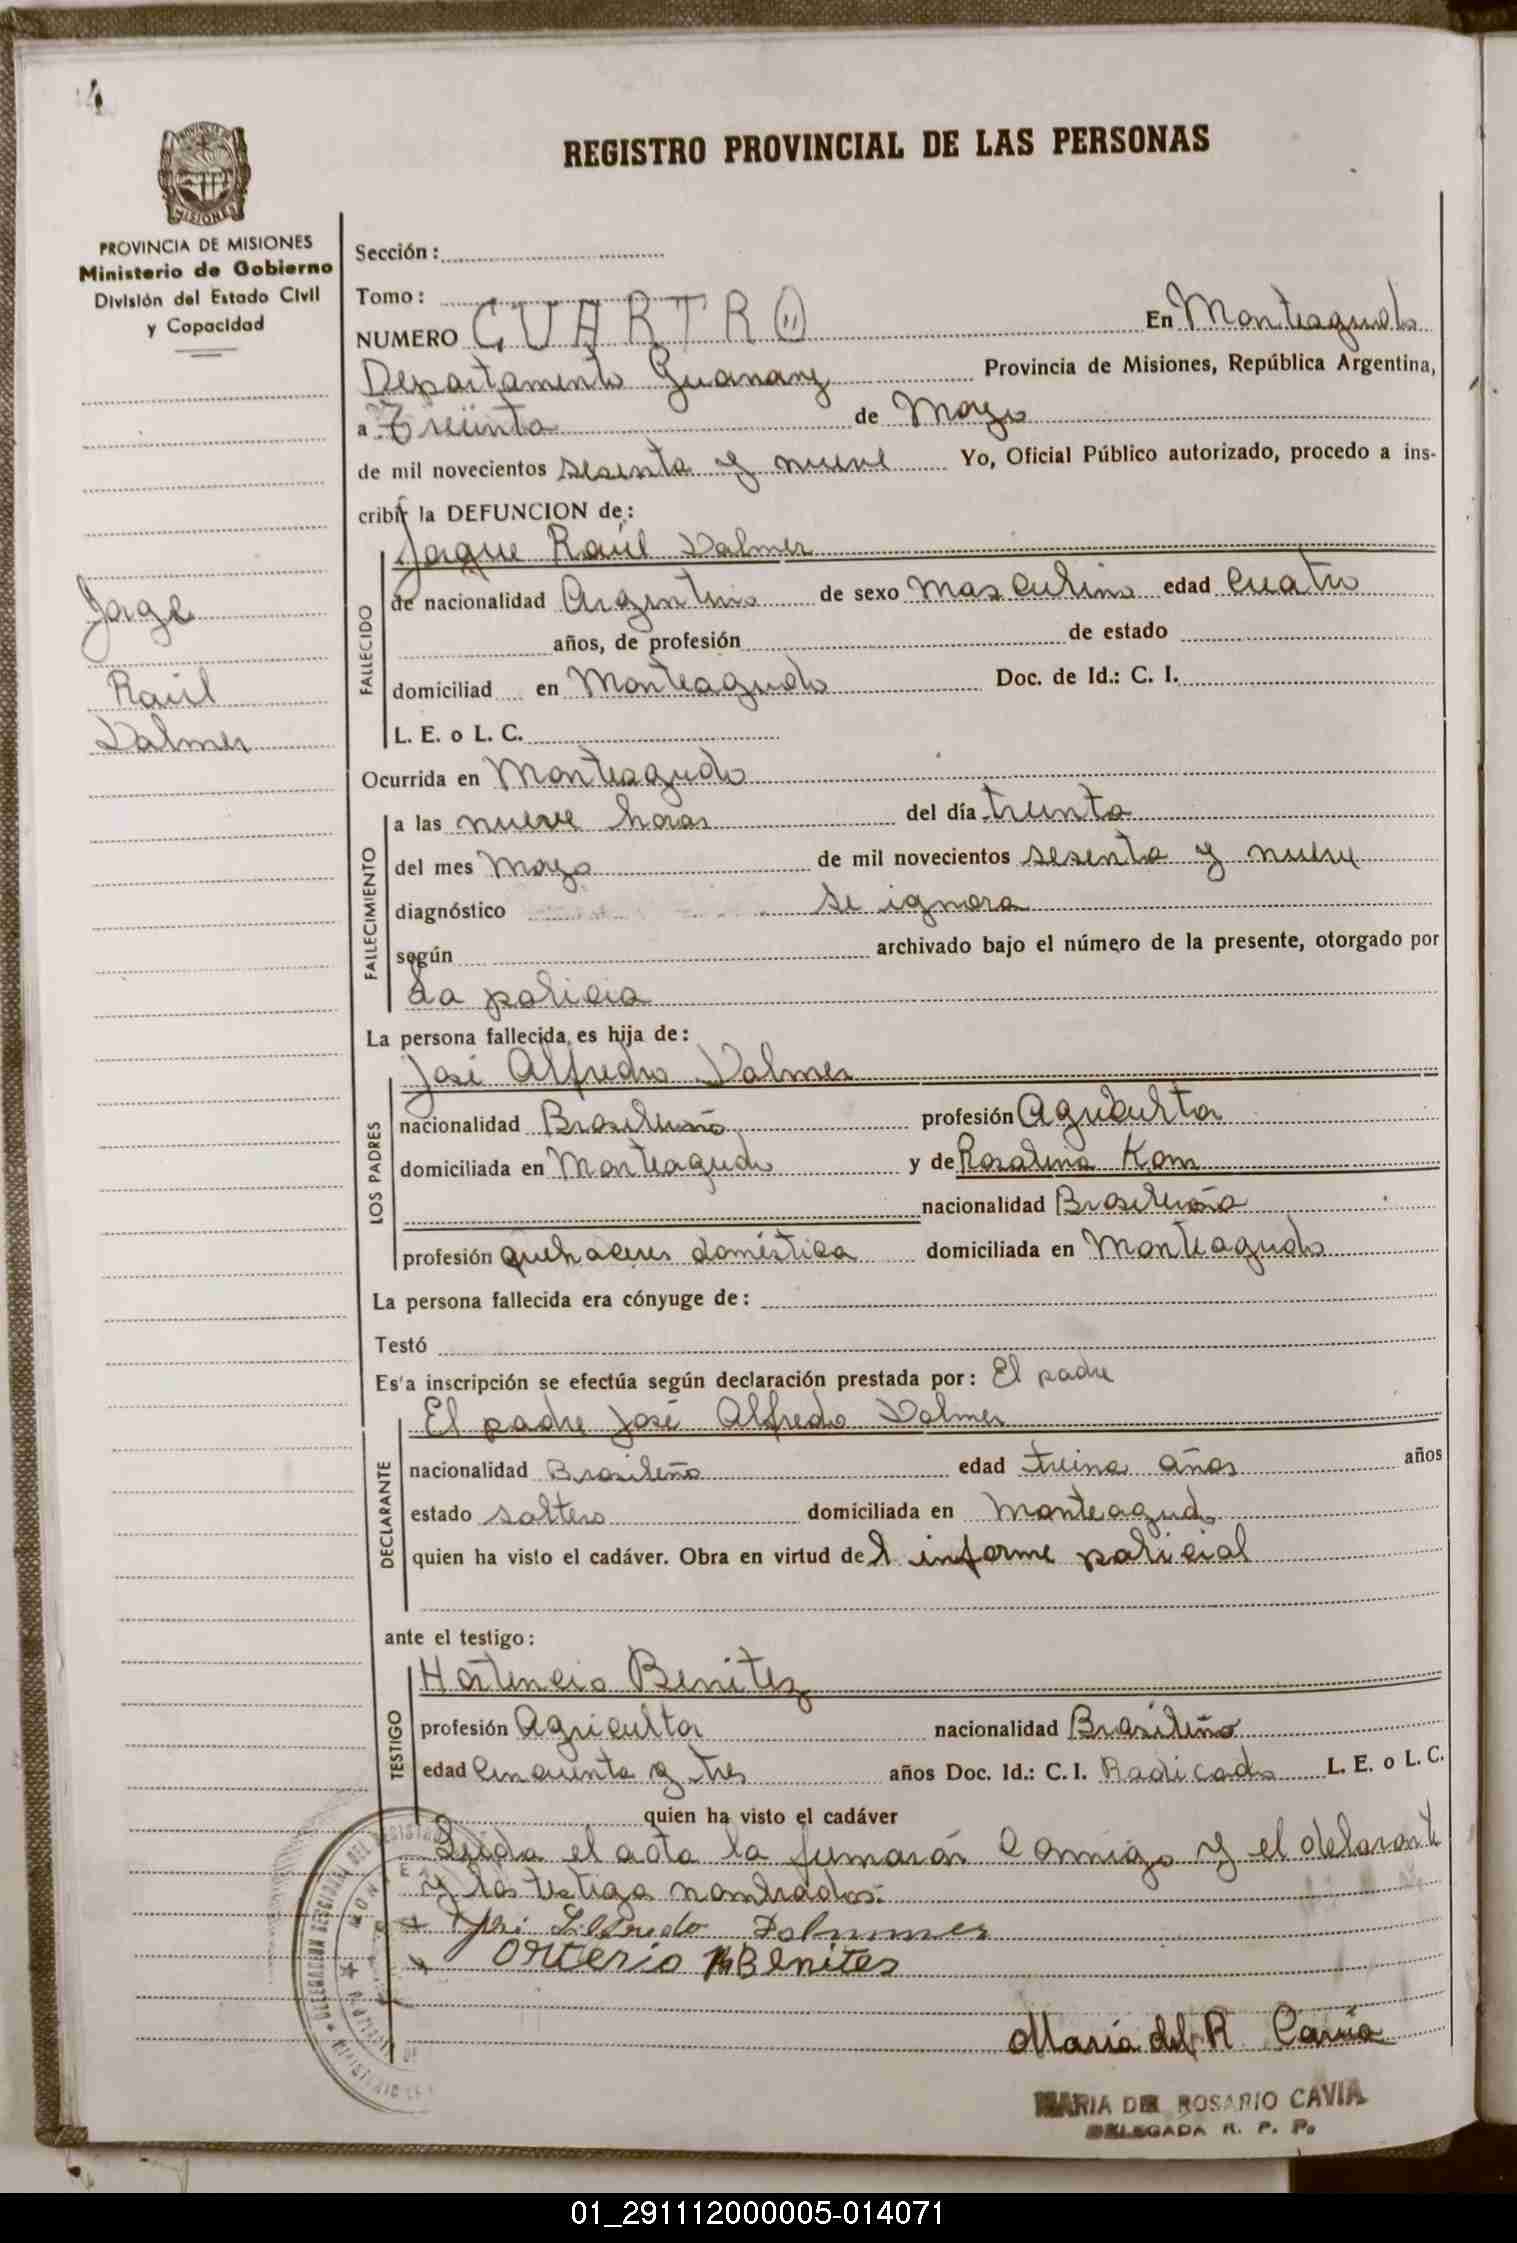 4
REGISTRO PROVINCIAL DE LAS PERSONAS
PROVINCIA DE MISIONES
Ministerio de Gobierno
División del Estado Civil
y Capacidad
Jorge
Raúl
Dalmer
Sección:
Tomo:
NUMERO CUARTRO En Monteagudo
Departamento Guarany Provincia de Misiones, República Argentina,
a Treinta de Mayo
de mil novecientos sesenta y nueve Yo, Oficial Público autorizado, procedo a ins-
cribir la DEFUNCION de:
Jorque Raúl Dalmer
FALLECIDO
de nacionalidad Argentino de sexo Masculino edad Cuatro
años, de profesión de estado
domiciliad en Monteagudo Doc. de Id.: C. I.
L. E. o L. C.
Ocurrida en Monteagudo
FALLECIMIENTO
a las nueve horas del día treinta
del mes Mayo de mil novecientos sesenta y nueve
diagnóstico se ignora
según archivado bajo el número de la presente, otorgado por
La policia
La persona fallecida es hija de:
José Alfredro Dalmer
LOS PADRES
nacionalidad Brasileño profesión Agricultor
domiciliada en Monteagudo y de Rosalina Kom
nacionalidad Brasileña
profesión quehaceres doméstica domiciliada en Monteagudo
La persona fallecida era cónyuge de:
Testó
Es'a inscripción se efectúa según declaración prestada por: El padre
El padre José Alfredo Dalmer
DECLARANTE
nacionalidad Brasileño edad treina años años
estado soltero domiciliada en Monteagudo
quien ha visto el cadáver. Obra en virtud del informe policial
ante el testigo:
Hortencio Benitez
TESTIGO
profesión Agricultor nacionalidad Brasileño
edad Cincuenta y tres años Doc. Id.: C. I. Radicado L. E. o L. C.
quien ha visto el cadáver
Leida el acta la firmarán Conmigo y el delarante
y los testigo nombrados.
Orterio Benites
María del R Cavia
MARIA DEL ROSARIO CAVIA
DELEGADA R. P. P.
01_291112000005-014071